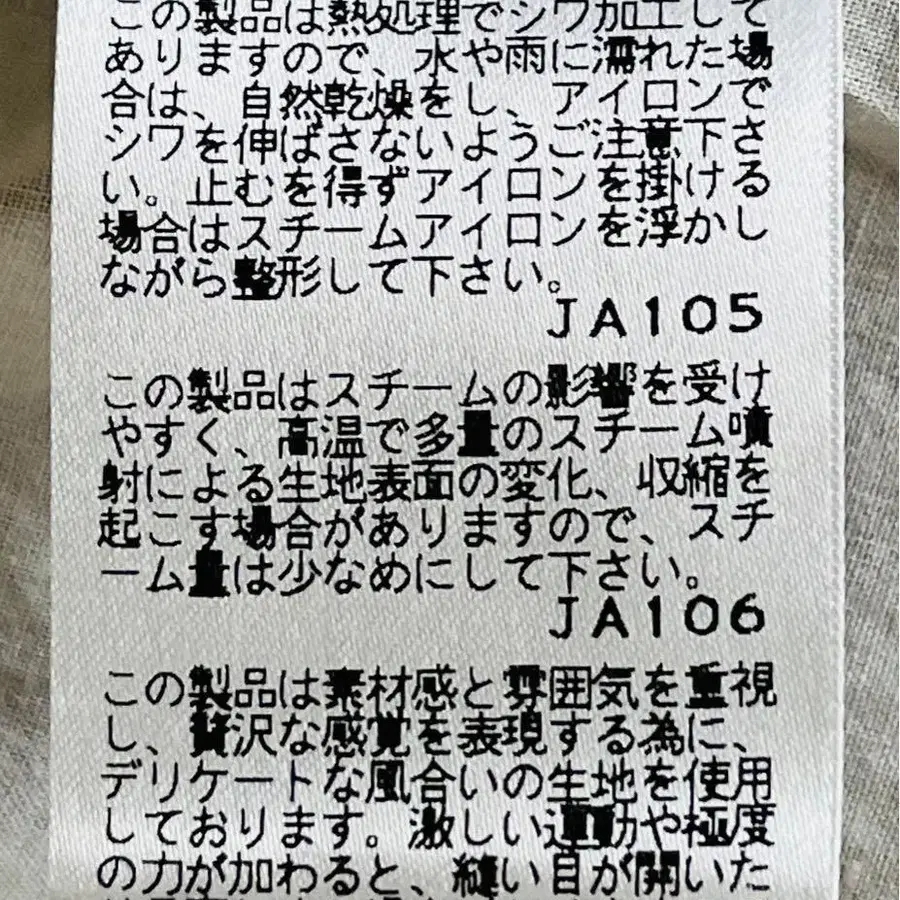 この製品は熱処理でシワ加工して
ありますので、水や雨に濡れた場
合は、自然乾燥をし、アイロンで
シワを伸ばさないようご注意下さ
い。止むを得ずアイロンを掛ける
場合はスチームアイロンを浮かし
ながら整形して下さい。
JA105
この製品はスチームの影響を受け
やすく、高温で多量のスチーム噴
射による生地表面の変化、収縮を
起こす場合がありますので、スチ
ーム量は少なめにして下さい。
JA106
この製品は素材感と雰囲気を重視
し、贅沢な感覚を表現する為に、
デリケートな風合いの生地を使用
しております。激しい運動や極度
の力が加わると、縫い目が開いた